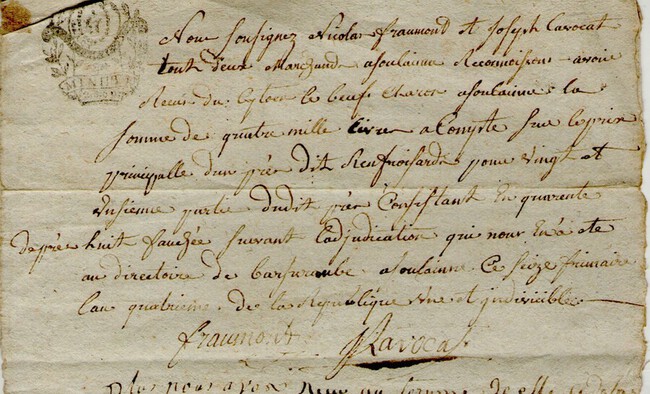 Nous Soussignez Nicolas fraumont Et Joseph Lavocat
tout deux Marchands asoulainne Reconnoissons avoir
Recus du Cytoen le beuf Charon asoulainne la
somme de quatre mille livres acompte Sur le prix
principalle d'un prés dit Renfroisards pour vingt et
unsieme partie dudit prés Consistant En quarente
huit fauchée suivant l'adjudication qui nous En a ete
au directoire de barsuraube asoulainne Ce Seize frimaire
l'an quatrieme de la Republique une et indivicible
fraumont Lavocat